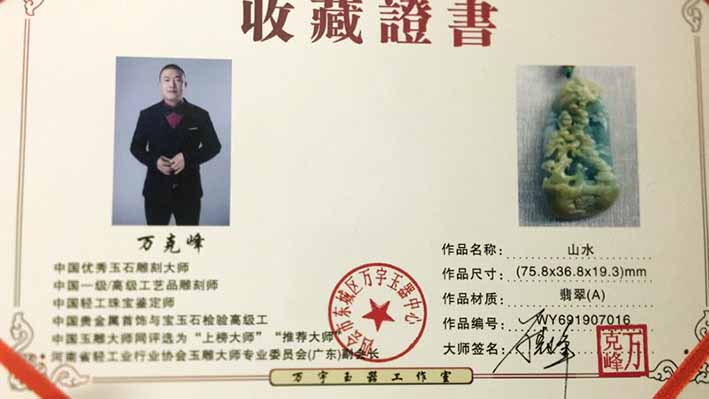 收藏證書
万克峰
中国优秀玉石雕刻大师
中国一级/高级工艺品雕刻师
中国轻工珠宝鉴定师
中国贵金属首饰与宝玉石检验高级工
中国玉雕大师网评选为“上榜大师”“推荐大师”
河南省轻工业行业协会玉雕大师专业委员会(广东)副会长
四会市东城区万宇玉器中心
作品名称: 山水
作品尺寸: (75.8x36.8x19.3)mm
作品材质: 翡翠(A)
作品编号: WY691907016
大师签名:
万克峰
万宇玉器工作室